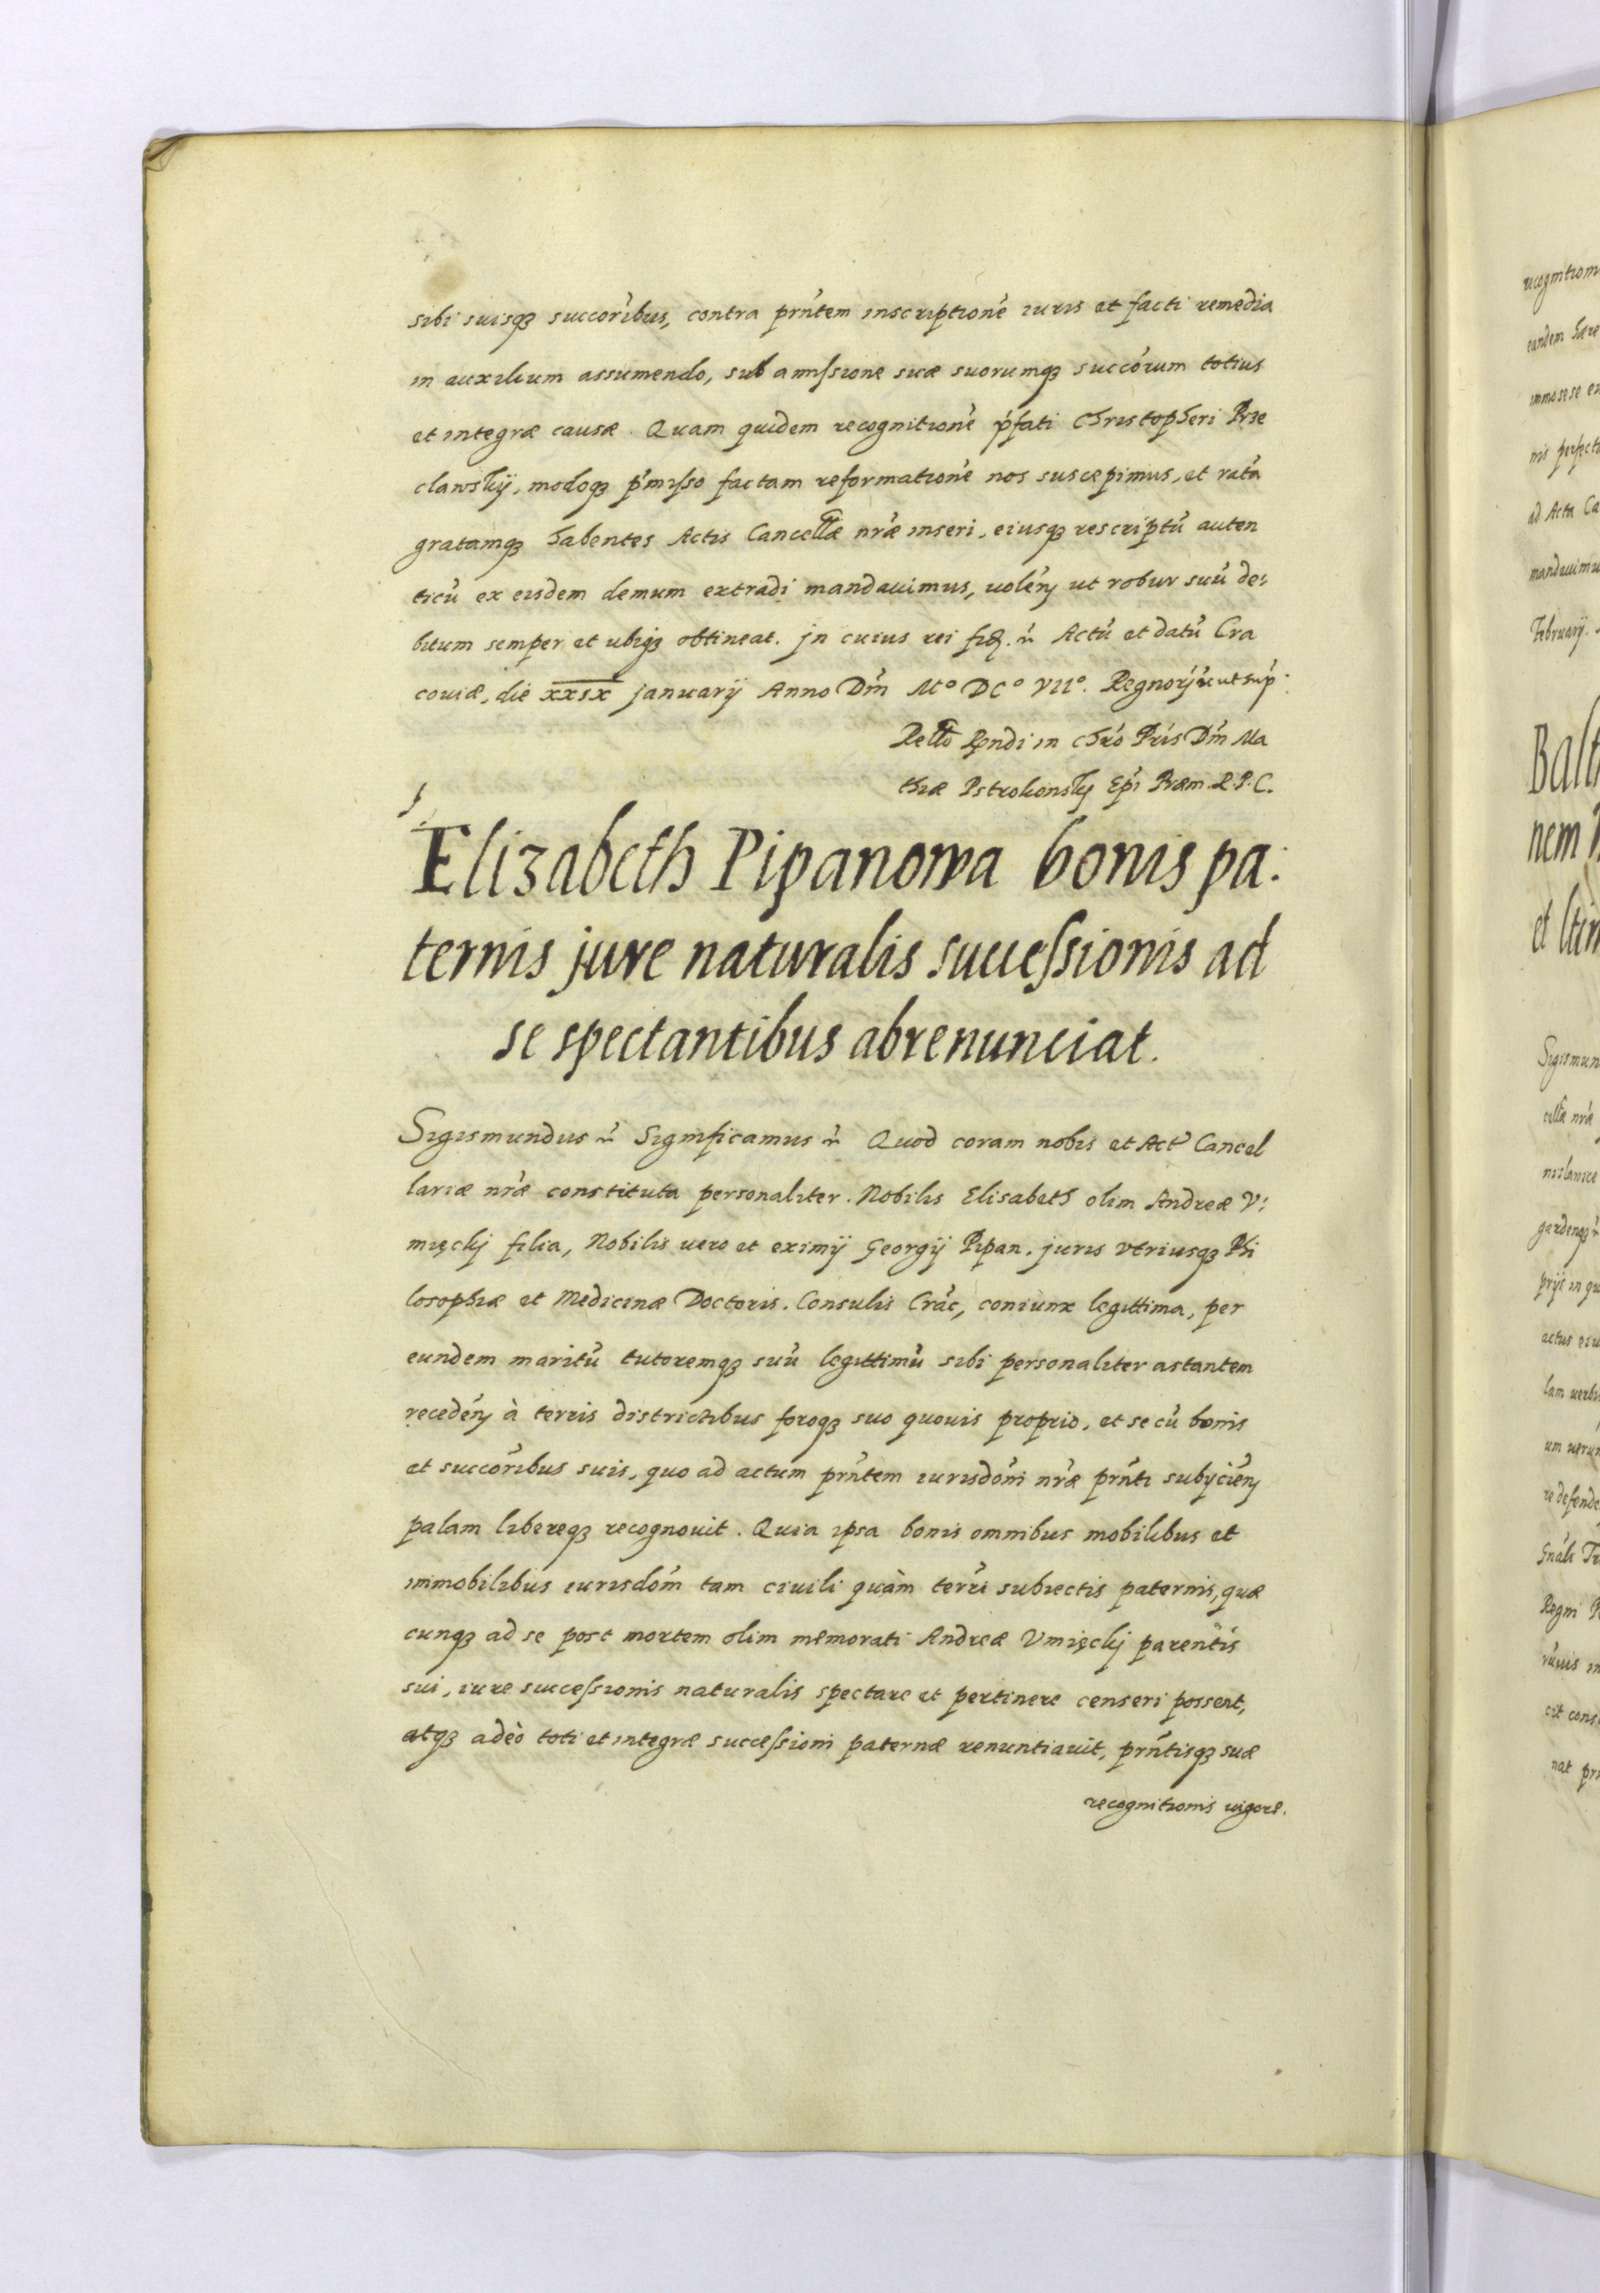 sibi suisq₃ succoribus, contra prn̄tem inscriptionē iuris et facti remedia
in auxilium assumendo, sub amissione suæ suorumq₃ succorum totius
et integræ causæ. Quam quidem recognitionē p̄fati Christopheri Prze
clawskij, modoq₃ p̄misso factam reformationē nos suscepimus, et ratā
gratamq₃ habentes Actis Cancellæ nr̄æ inseri, eiusq₃ rescriptū auten
ticū ex eisdem demum extradi mandauimus, uolen̄ ut robur suū de:
bitum semper et ubiq₃ obtineat. Jn cuius rei fid. Actū et datū Cra
couiæ, die xxix januarij Anno Dn̄i Mº DCº VIIº. Regnor ut sup̄.
Rello Rendi in Chrō Pris Dn̄i Ma
thiæ Pstrokonsky Ep̄i Præm. R. P. C.
Elizabeth Pipanowa bonis pa:
ternis jure naturalis succeſsionis ad
se spectantibus abrenunciat.
Sigismundus Significamus Quod coram nobis et Act Cancel
lariæ nr̄æ constituta personaliter. Nobilis Elisabeth olim Andreæ V:
mięckj filia, Nobilis uero et eximij Georgij Pipan. juris vtriusq₃ Phi
losophiæ et Medicinæ Doctoris. Consulis Crac, coniunx legittima, per
eundem maritū tutoremq₃ suū legittimū sibi personaliter astantem
receden̄ à terris districtibus foroq₃ suo quouis proprio, et se cū bonis
et succoribus suis, quo ad actum prn̄tem iurisdōni nr̄æ prn̄ti subijcien̄
palam libereq₃ recognouit. Quia ipsa bonis omnibus mobilibus et
immobilibus iurisdōni tam ciuili quàm terrī subiectis paternis, quæ
cunq₃ ad se post mortem olim memorati Andreæ Vmięckj parentis
sui, iure succeſsionis naturalis spectare et pertinere censeri possent,
atq₃ adeò toti et integræ succeſsioni paternæ renuntiauit, prn̄tisq₃ suæ
recognitionis uigore.
recognitionis
eandem
immo sese
nis
ad Acta Ca
mandauimus
Februarij.
Balt
nem
et
Sigismun
actus
Regni